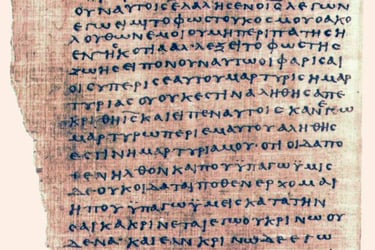 ΟΥΝΑΥΤΟΙϹΕΛΑΛΗϹΕΝΟΙϹΛΕΓΩΝ
ΕΓΩΕΙΜΙΤΟΦΩϹΤΟΥΚΟϹΜΟΥΟΑΚΟ
ΛΟΥΘΩΝΕΜΟΙΟΥΜΗΠΕΡΙΠΑΤΗϹΗ
ΕΝΤΗϹΚΟΤΙΑΑΛΛΕΞΕΙΤΟΦΩϹΤΗϹ
ΖΩΗϹΕΙΠΟΝΟΥΝΑΥΤΩΟΙΦΑΡΙϹΑΙ
ΟΙϹΥΠΕΡΙϹΕΑΥΤΟΥΜΑΡΤΥΡΙϹΗΜΑΡ
ΤΥΡΙΑϹΟΥΟΥΚΕϹΤΙΝΑΛΗΘΗϹΑΠΕ
ΚΡΙΘΗΙϹΚΑΙΕΙΠΕΝΑΥΤΟΙϹΚΑΝΕΓΩ
ΜΑΡΤΥΡΩΠΕΡΙΕΜΑΥΤΟΥΑΛΗΘΗϹ
ΕϹΤΙΝΗΜΑΡΤΥΡΙΑΜΟΥΟΤΙΟΙΔΑΠΟ
ΘΕΝΗΛΘΟΝΚΑΙΠΟΥΥΠΑΓΩΫΜΙϹ
ΔΕΟΥΚΟΙΔΑΤΑΙΠΟΘΕΝΕΡΧΟΜΑΙ
ΗΠΟΥΫΠΑΓΩΫΜΙϹΚΑΤΑΤΗΝ
ϹΑΡΚΑΚΡΙΝΕΤΑΙΕΓΩΟΥΚΡΙΝΩΟΥ
ΔΕΝΑΚΑΙΕΑΝΚΡΙΝΩΔΕΕΓΩ